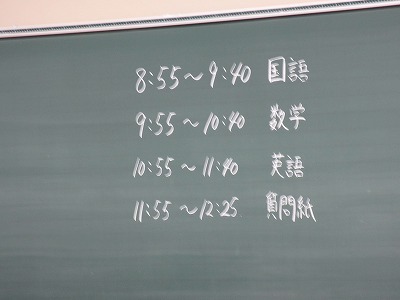 8:55～9:40 国語
9:55～10:40 数学
10:55～11:40 英語
11:55～12:25 質問紙